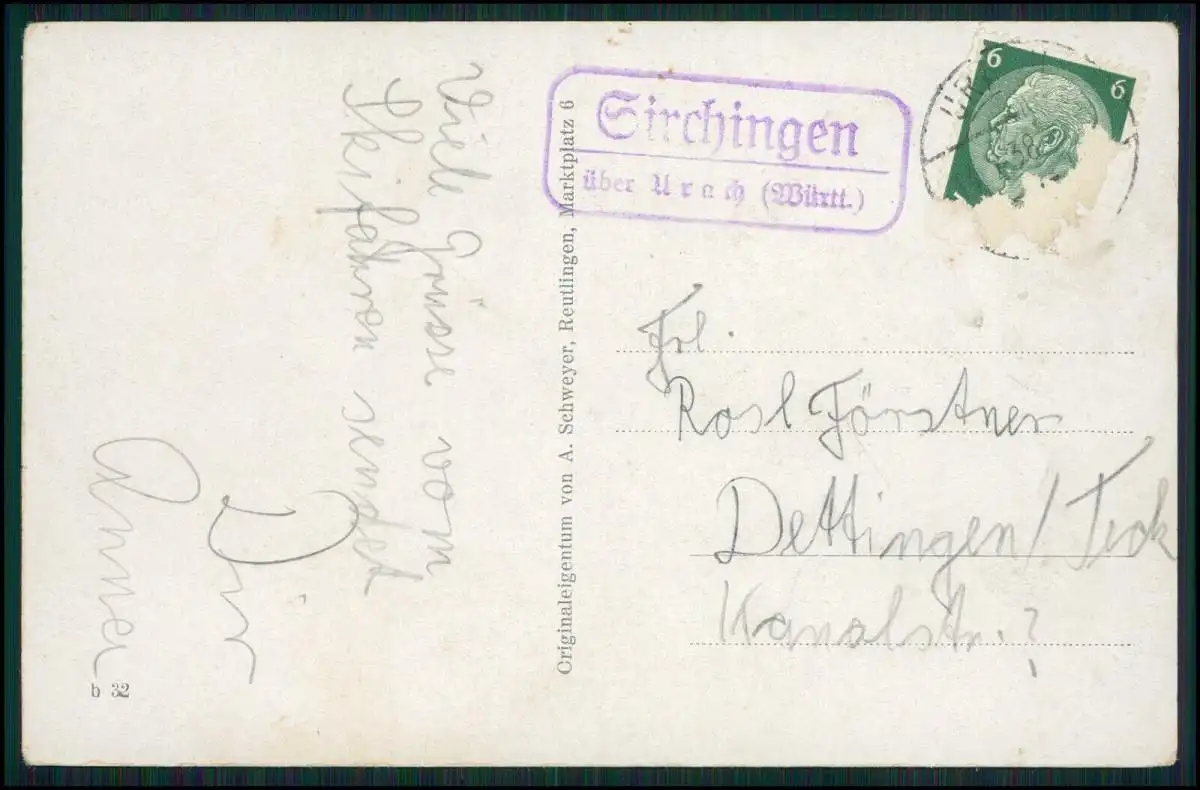 Sirchingen
über Urach (Württ.)
6 6
UR
38
Viele Grüsse vom
Skifahren sendet
Dir
Anne
Originaleigentum von A. Schweyer, Reutlingen, Marktplatz 6
Frl.
Rosl Förstner
Dettingen/Teck
Kanalstr. ?
b 32